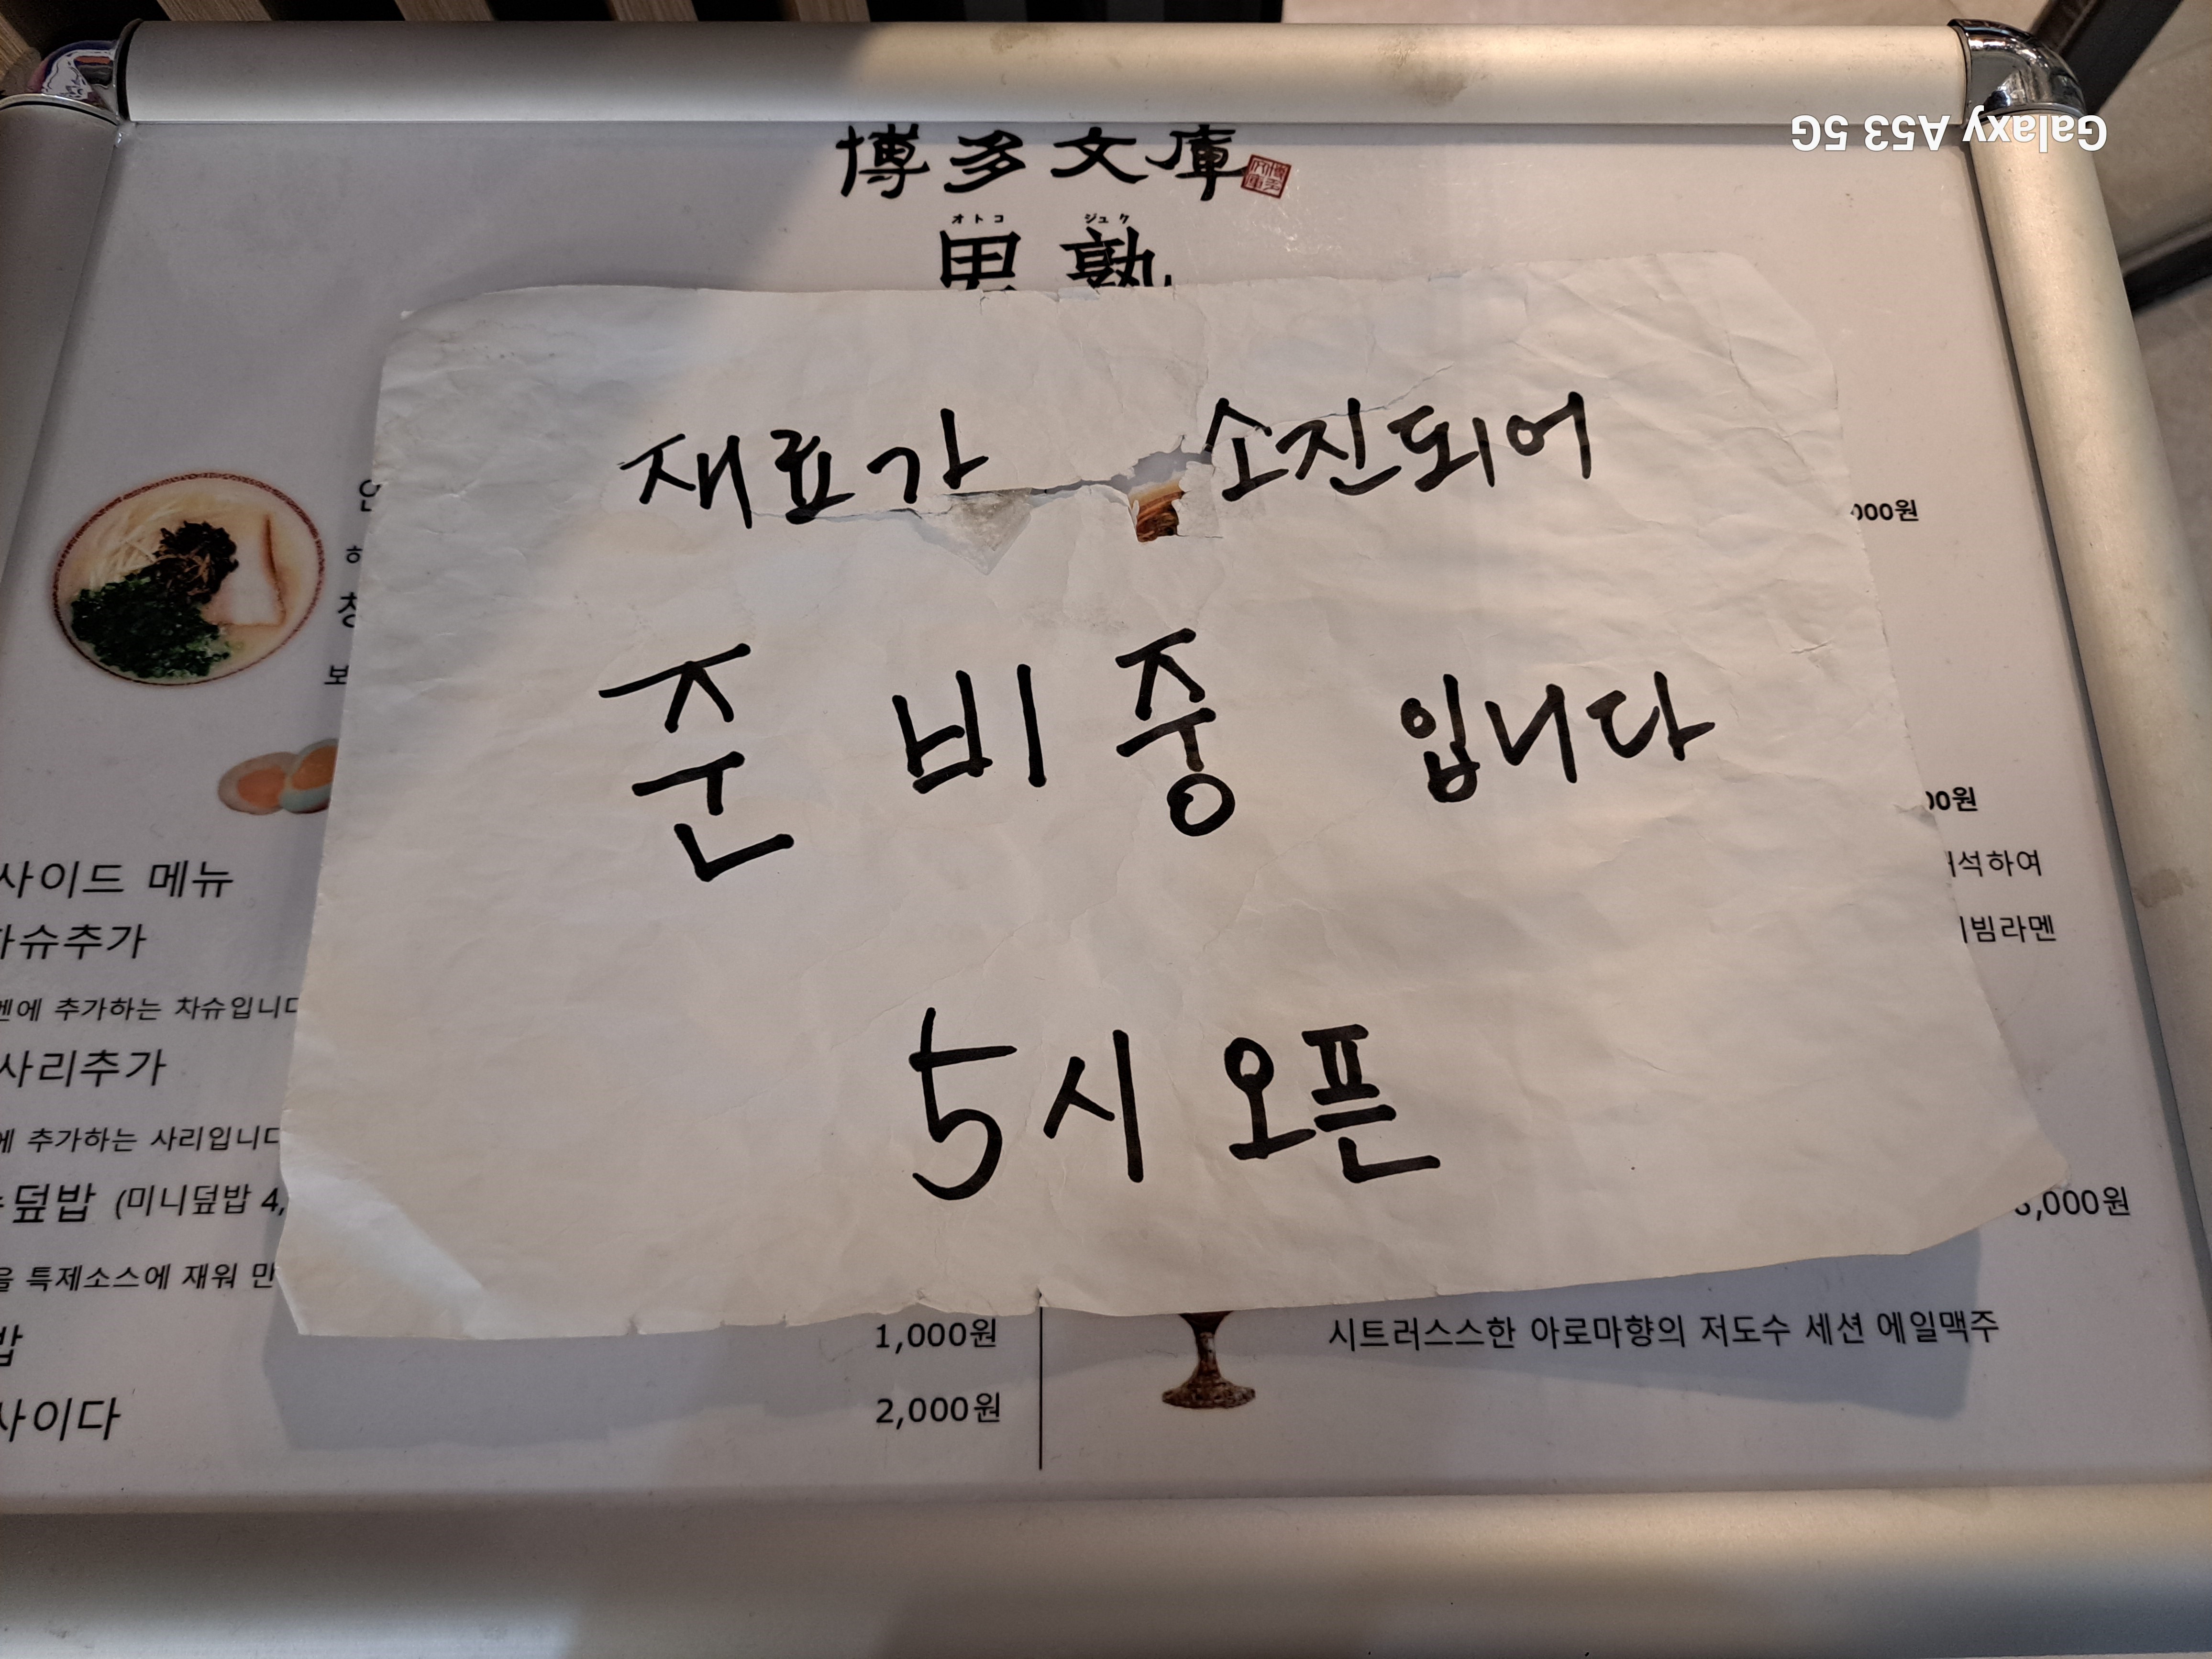 Galaxy A53 5G
博多文庫
オトコ ジュク
男塾
재료가 소진되어
준비중 입니다
5시 오픈
000원
00원
석하여
빔라멘
사이드 메뉴
슈추가
에 추가하는 차슈입니다
사리추가
에 추가하는 사리입니다
덮밥 (미니덮밥 4,
을 특제소스에 재워 만
,000원
밥 1,000원
사이다 2,000원
시트러스스한 아로마향의 저도수 세션 에일맥주